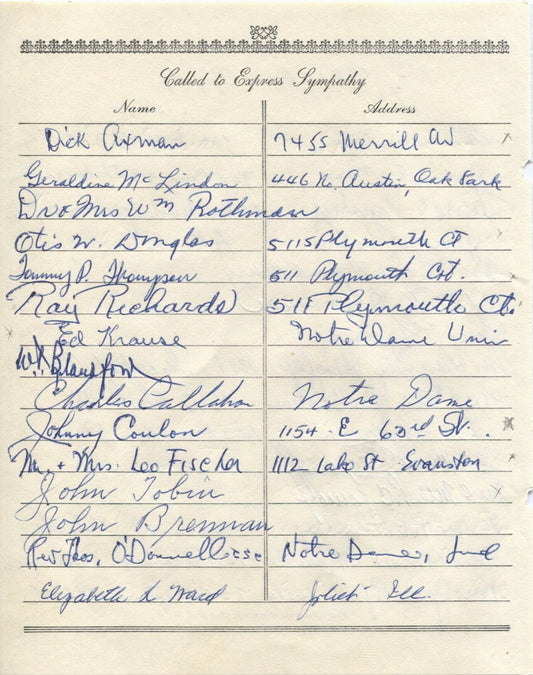 Called to Express Sympathy
Name Address
Dick Axman 7455 Merrill Av x
Geraldine McLindon 446 N. Austin, Oak Park
Dr & Mrs Wm Rothman
Otis W. Douglas 5115 Plymouth Ct
Tommy P. Thompson 511 Plymouth Crt.
Ray Richards 511 Plymouth Ct.
x Ed Krause Notre Dame Univ
W.
Charles Callahan Notre Dame
Johnny Coulon 1154 - E 63rd St. x
Mr. + Mrs. Leo Fischer 1112 Lake St Evanston x
John Tobin
John Brennan
Rev Thos. O'Donnell csc Notre Dame, Ind
Elizabeth L Ward Joliet Ill.